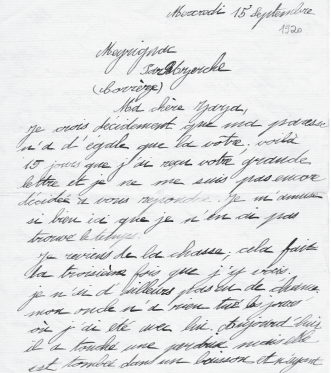 Mercredi 15 Septembre
1920
Meyrignac
par Uzerche
(Corrèze)
Ma chère Zaza,
Je crois décidément que ma paresse
n'a d'égale que la votre, voilà
15 jours que j'ai reçu votre grande
lettre et je ne me suis pas encore
décidée à vous répondre. Je m'amuse
si bien ici que je n'en ai pas
trouvé le temps.
Je reviens de la chasse; cela fait
la troisième fois que j'y vais.
je n'ai d'ailleurs pas eu de chance,
mon oncle n'a rien tué les jours
où j'ai été avec lui. Aujourd'hui
il a touché une perdrix mais elle
est tombée dans un buisson et n'ayant